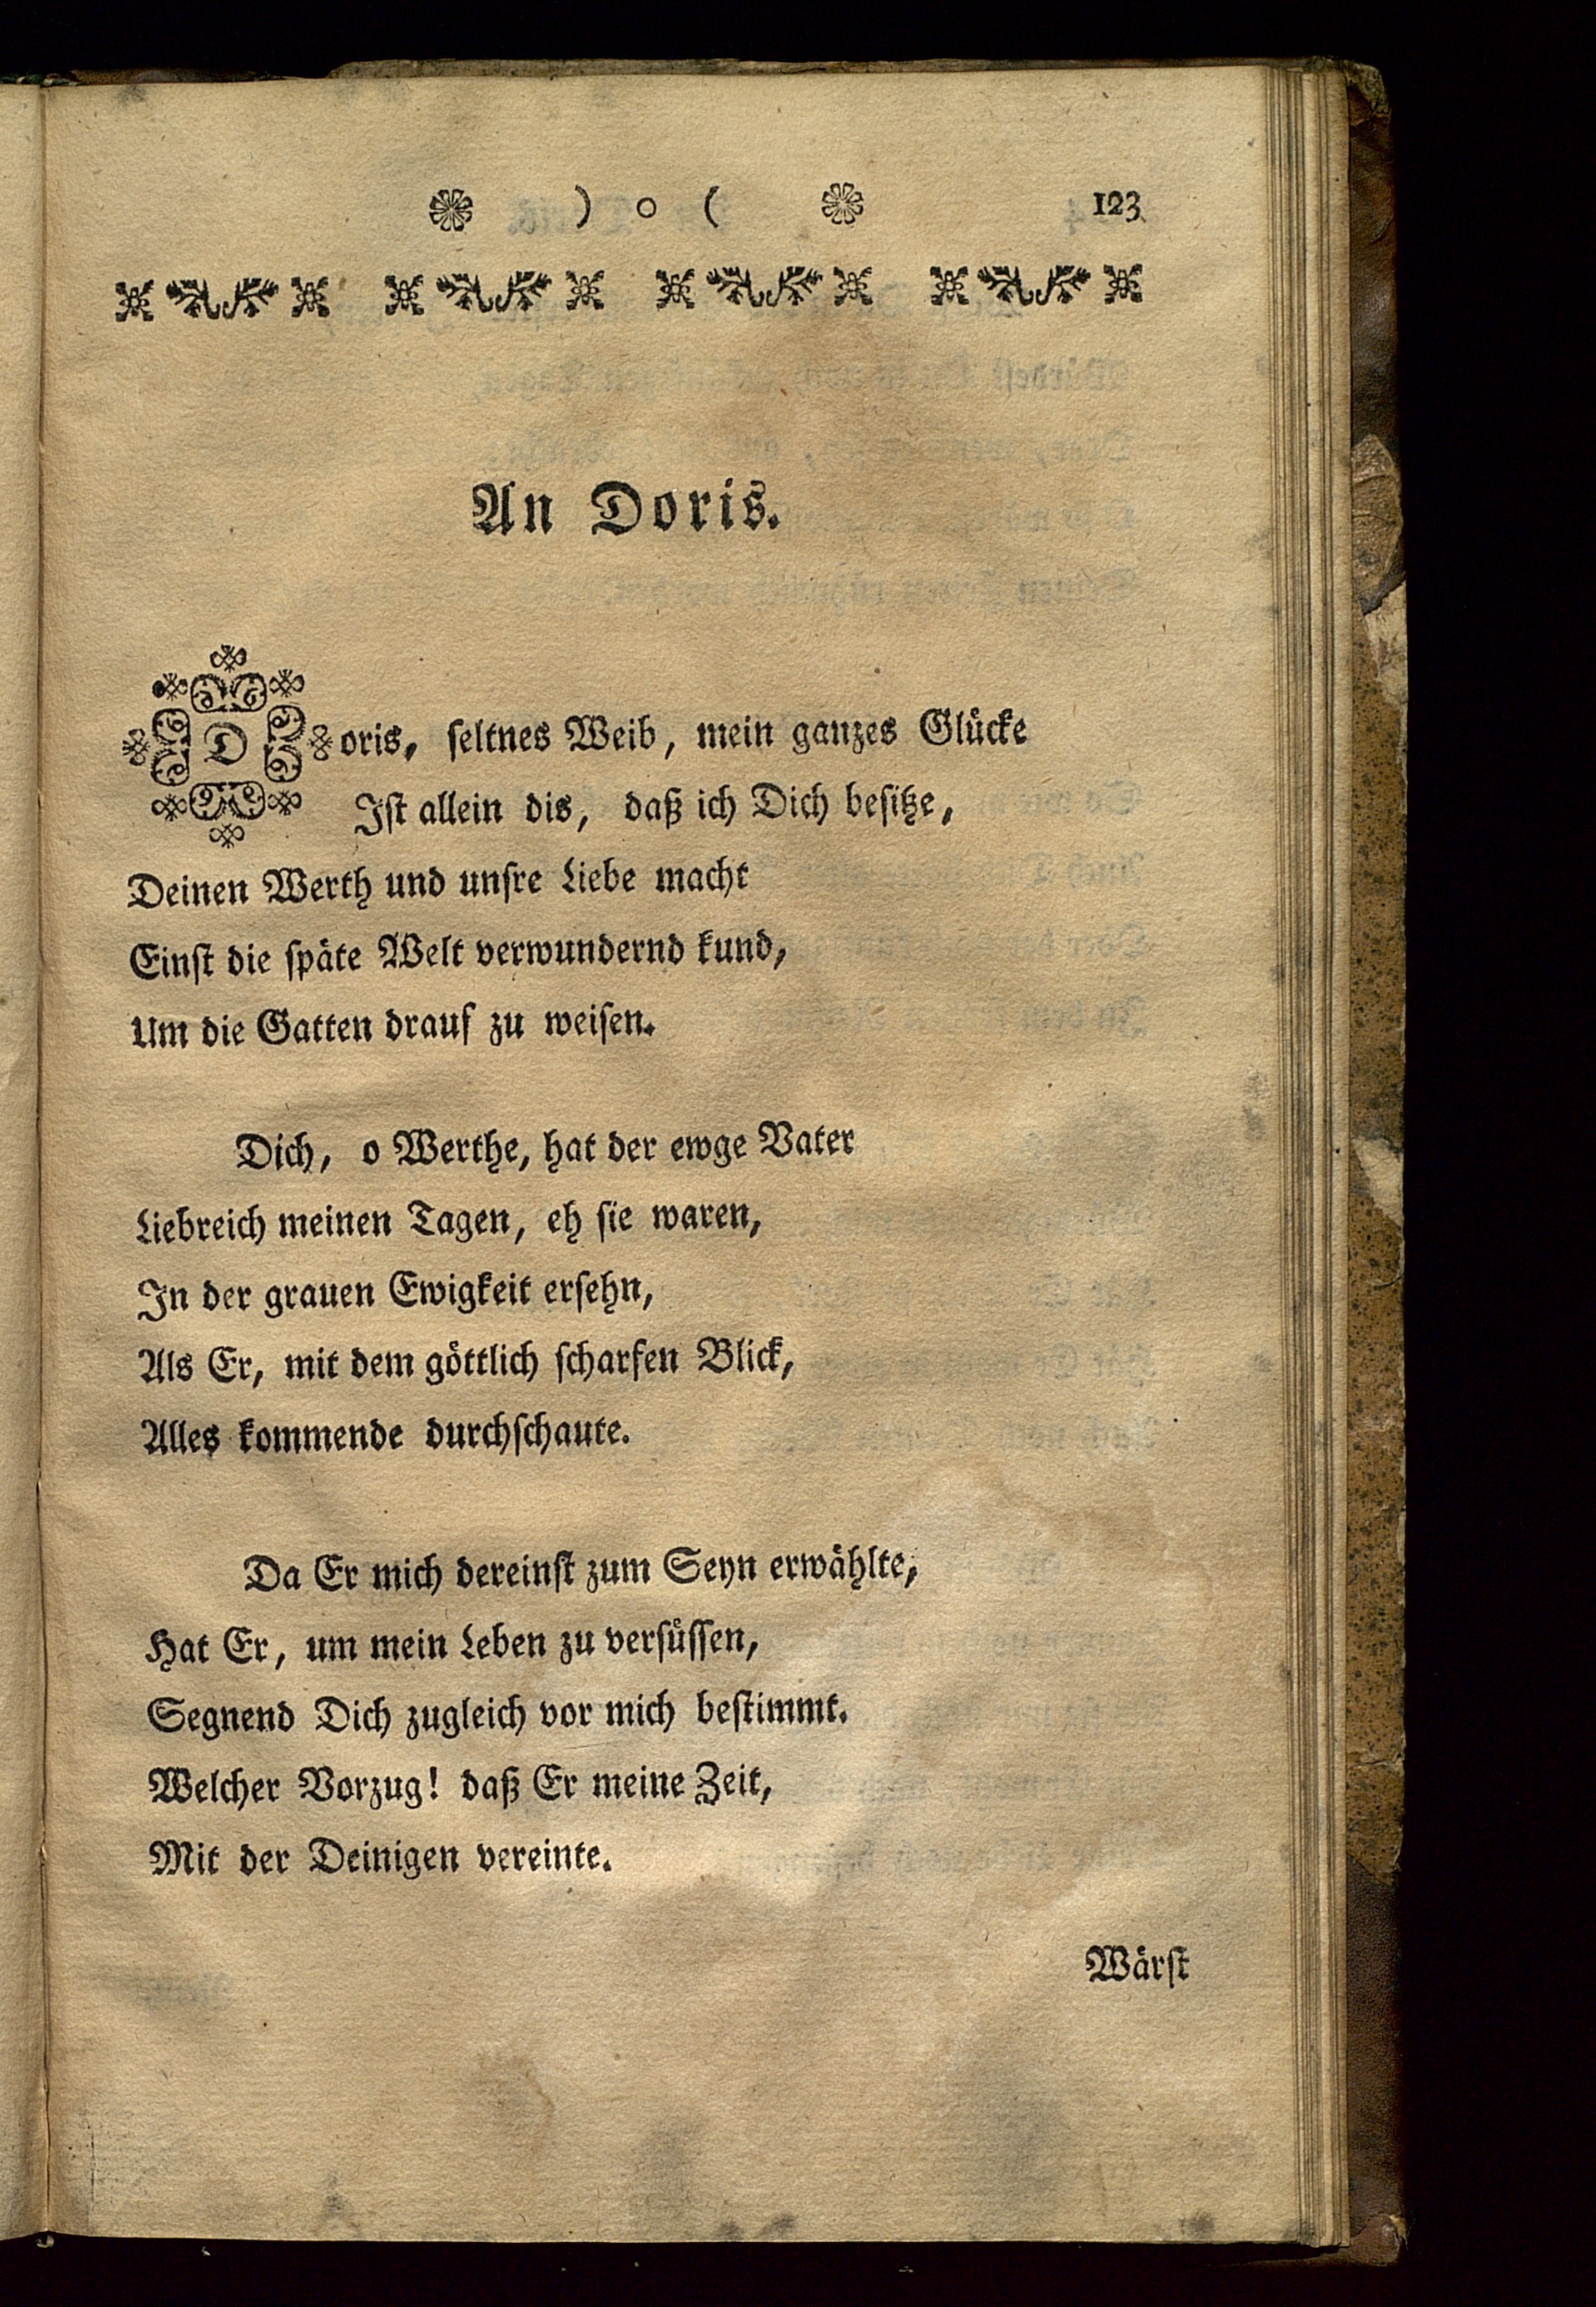 ) o ( 123
An Doris.
Doris, ſeltnes Weib, mein ganzes Glücke
Iſt allein dis, daß ich Dich beſitze,
Deinen Werth und unſre Liebe macht
Einſt die ſpäte Welt verwundernd kund,
Um die Gatten drauf zu weiſen.
Dich, o Werthe, hat der ewge Vater
Liebreich meinen Tagen, eh ſie waren,
In der grauen Ewigkeit erſehn,
Als Er, mit dem göttlich ſcharfen Blick,
Alles kommende durchſchaute.
Da Er mich dereinſt zum Seyn erwählte,
Hat Er, um mein Leben zu verſüſſen,
Segnend Dich zugleich vor mich beſtimmt.
Welcher Vorzug! daß Er meine Zeit,
Mit der Deinigen vereinte.
Wärſt